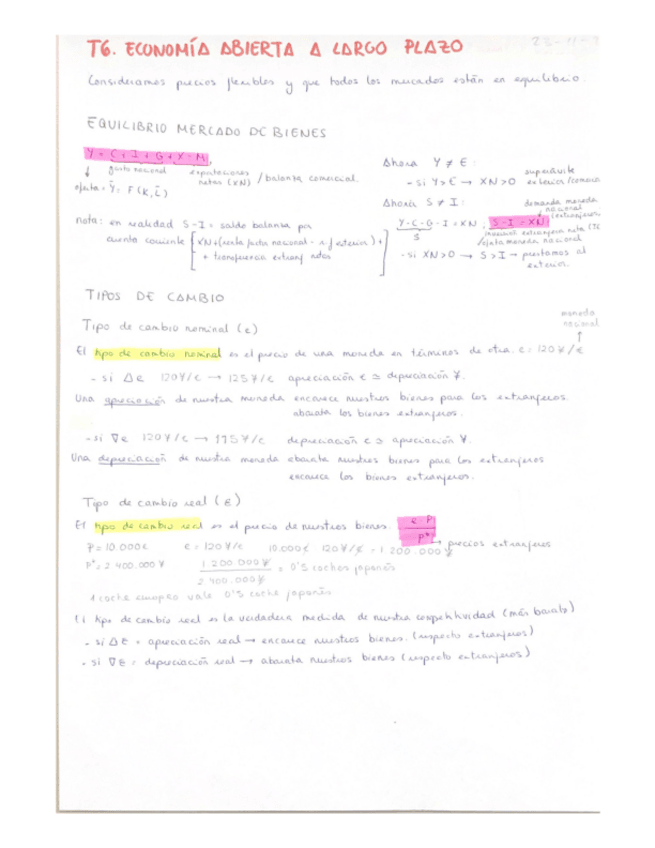 T6. ECONOMÍA ABIERTA A LARGO PLAZO
23-4-
Consideramos precios flexibles y que todos los mercados están en equilibrio.
EQUILIBRIO MERCADO DE BIENES
Y = C + I + G + X - M
gasto nacional
exportaciones netas (XN) / balanza comercial.
oferta = Ȳ = F(K̄, L̄)
nota: en realidad S-I = saldo balanza por
cuenta corriente [XN + (renta facto nacional - r. f exterior) +
+ transferencias extranj netas]
Ahora Y ≠ E :
- si Y > E → XN > 0 superávit exterior/comerci
Ahora S ≠ I :
demanda moneda nacional (extranjeros
Y-C-G-I = XN ; S-I = XN
S
inversión extranjera neta
/oferta moneda nacional
- si XN > 0 → S > I → prestamos al exterior.
TIPOS DE CAMBIO
Tipo de cambio nominal (e)
moneda nacional
El tipo de cambio nominal es el precio de una moneda en términos de otra. e = 120 ¥/€
- si Δe 120¥/€ → 125¥/€ apreciación € ≃ depreciación ¥.
Una apreciación de nuestra moneda encarece nuestros bienes para los extranjeros.
abarata los bienes extranjeros.
- si ∇e 120¥/€ → 115¥/€ depreciación € ≃ apreciación ¥.
Una depreciación de nuestra moneda abarata nuestros bienes para los extranjeros
encarece los bienes extranjeros.
Tipo de cambio real (ε)
El tipo de cambio real es el precio de nuestros bienes. e · P / P* → precios extranjeros
P = 10.000€ e = 120 ¥/€ 10.000€ · 120 ¥/€ = 1 200.000 ¥
P* = 2 400.000 ¥ 1 200 000¥ / 2 400.000¥ = 0'5 coches japonés
1 coche europeo vale 0'5 coche japonés
El tipo de cambio real es la verdadera medida de nuestra competitividad (más barato)
- si Δε = apreciación real → encarece nuestros bienes. (respecto extranjeros)
- si ∇ε = depreciación real → abarata nuestros bienes (respecto extranjeros)